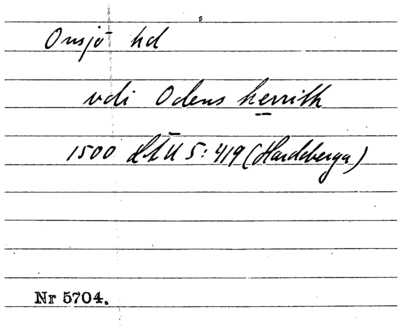 Onsjö hd
vdi Odens herrith
1500 HLU 5:419 (Hardeberga)
Nr 5704.